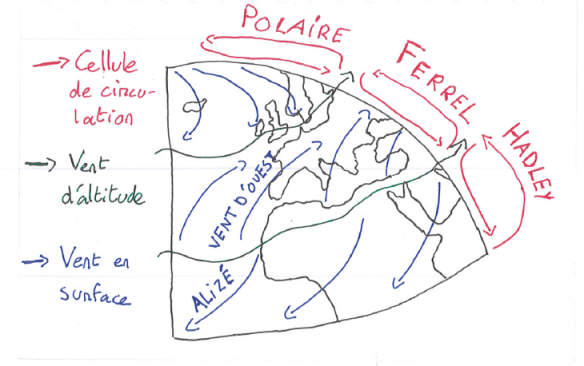 POLAIRE
FERREL
HADLEY
→ Cellule
de circu-
lation
→ Vent
d'altitude
→ Vent en
surface
VENT D'OUEST
ALIZÉ